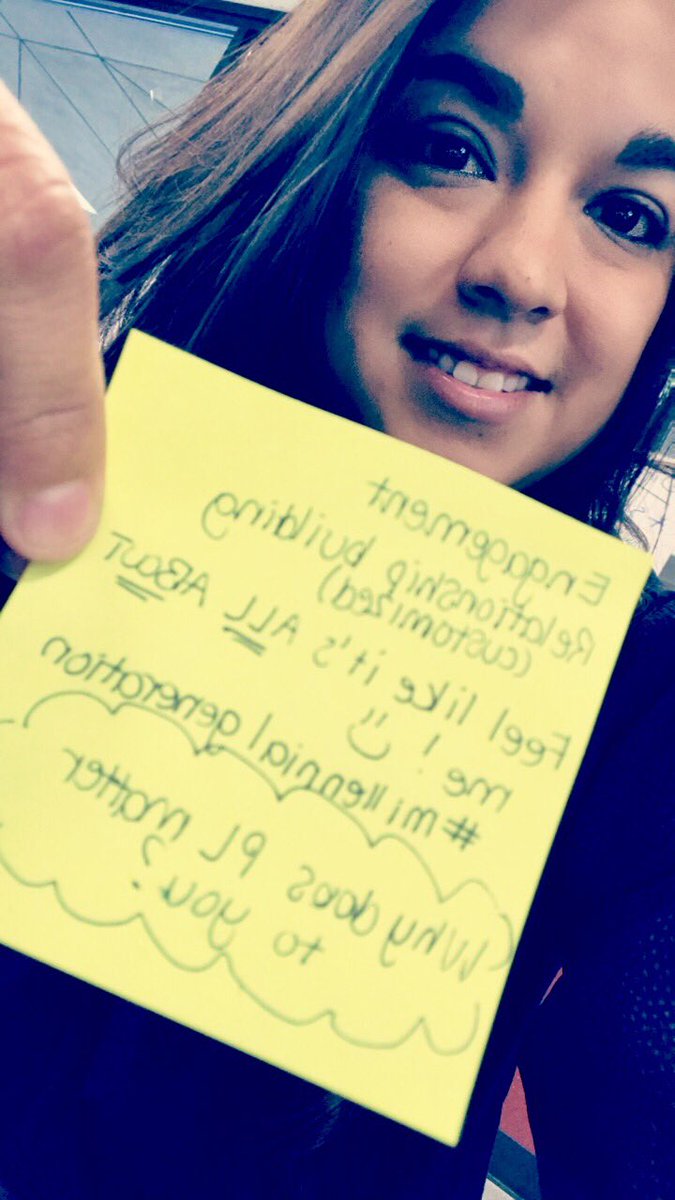 Engagement
Relationship building
(customized)
Feel like it's ALL ABOUT
me!
#millennial generation
Why does PL matter
to you?